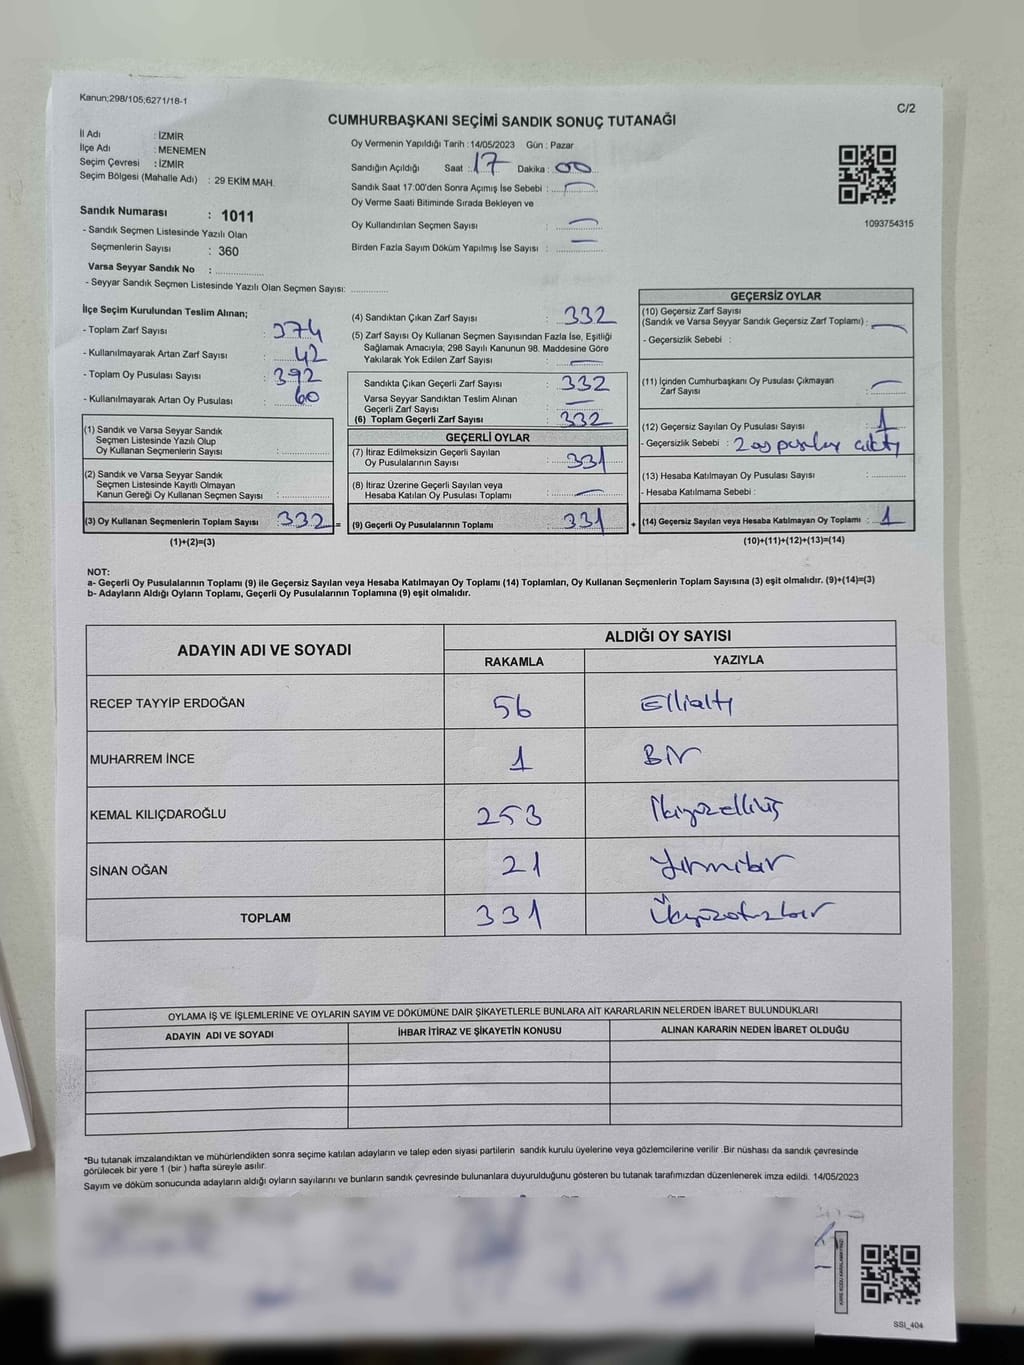 Kanun;298/105;6271/18-1
C/2
CUMHURBAŞKANI SEÇİMİ SANDIK SONUÇ TUTANAĞI
İl Adı : İZMİR
İlçe Adı : MENEMEN
Seçim Çevresi : İZMİR
Seçim Bölgesi (Mahalle Adı) : 29 EKİM MAH.
Sandık Numarası : 1011
- Sandık Seçmen Listesinde Yazılı Olan
Seçmenlerin Sayısı : 360
Varsa Seyyar Sandık No :
- Seyyar Sandık Seçmen Listesinde Yazılı Olan Seçmen Sayısı:
Oy Vermenin Yapıldığı Tarih : 14/05/2023 Gün : Pazar
Sandığın Açıldığı Saat : 17 Dakika : 00
Sandık Saat 17:00'den Sonra Açımış İse Sebebi :
Oy Verme Saati Bitiminde Sırada Bekleyen ve
Oy Kullandırılan Seçmen Sayısı :
Birden Fazla Sayım Döküm Yapılmış İse Sayısı :
1093754315
İlçe Seçim Kurulundan Teslim Alınan;
- Toplam Zarf Sayısı : 374
- Kullanılmayarak Artan Zarf Sayısı : 42
- Toplam Oy Pusulası Sayısı : 392
- Kullanılmayarak Artan Oy Pusulası : 60
(1) Sandık ve Varsa Seyyar Sandık
Seçmen Listesinde Yazılı Olup
Oy Kullanan Seçmenlerin Sayısı :
(2) Sandık ve Varsa Seyyar Sandık
Seçmen Listesinde Kayıtlı Olmayan
Kanun Gereği Oy Kullanan Seçmen Sayısı :
(3) Oy Kullanan Seçmenlerin Toplam Sayısı : 332 =
(1)+(2)=(3)
(4) Sandıktan Çıkan Zarf Sayısı : 332
(5) Zarf Sayısı Oy Kullanan Seçmen Sayısından Fazla İse, Eşitliği
Sağlamak Amacıyla; 298 Sayılı Kanunun 98. Maddesine Göre
Yakılarak Yok Edilen Zarf Sayısı :
Sandıkta Çıkan Geçerli Zarf Sayısı : 332
Varsa Seyyar Sandıktan Teslim Alınan
Geçerli Zarf Sayısı :
(6) Toplam Geçerli Zarf Sayısı : 332
GEÇERLİ OYLAR
(7) İtiraz Edilmeksizin Geçerli Sayılan
Oy Pusulalarının Sayısı : 331
(8) İtiraz Üzerine Geçerli Sayılan veya
Hesaba Katılan Oy Pusulası Toplamı :
(9) Geçerli Oy Pusulalarının Toplamı : 331 +
GEÇERSİZ OYLAR
(10) Geçersiz Zarf Sayısı
(Sandık ve Varsa Seyyar Sandık Geçersiz Zarf Toplamı) :
- Geçersizlik Sebebi :
(11) İçinden Cumhurbaşkanı Oy Pusulası Çıkmayan
Zarf Sayısı :
(12) Geçersiz Sayılan Oy Pusulası Sayısı : 1
- Geçersizlik Sebebi : 2 oy pusulası çıktı
(13) Hesaba Katılmayan Oy Pusulası Sayısı :
- Hesaba Katılmama Sebebi :
(14) Geçersiz Sayılan veya Hesaba Katılmayan Oy Toplamı : 1
(10)+(11)+(12)+(13)=(14)
NOT:
a- Geçerli Oy Pusulalarının Toplamı (9) ile Geçersiz Sayılan veya Hesaba Katılmayan Oy Toplamı (14) Toplamları, Oy Kullanan Seçmenlerin Toplam Sayısına (3) eşit olmalıdır. (9)+(14)=(3)
b- Adayların Aldığı Oyların Toplamı, Geçerli Oy Pusulalarının Toplamına (9) eşit olmalıdır.
ADAYIN ADI VE SOYADI
ALDIĞI OY SAYISI
RAKAMLA YAZIYLA
RECEP TAYYİP ERDOĞAN 56 Ellialtı
MUHARREM İNCE 1 Bir
KEMAL KILIÇDAROĞLU 253 İkiyüzelliüç
SİNAN OĞAN 21 Yirmibir
TOPLAM 331 Üçyüzotuzbir
OYLAMA İŞ VE İŞLEMLERİNE VE OYLARIN SAYIM VE DÖKÜMÜNE DAİR ŞİKAYETLERLE BUNLARA AİT KARARLARIN NELERDEN İBARET BULUNDUKLARI
ADAYIN ADI VE SOYADI İHBAR İTİRAZ VE ŞİKAYETİN KONUSU ALINAN KARARIN NEDEN İBARET OLDUĞU
*Bu tutanak imzalandıktan ve mühürlendikten sonra seçime katılan adayların ve talep eden siyasi partilerin sandık kurulu üyelerine veya gözlemcilerine verilir .Bir nüshası da sandık çevresinde
görülecek bir yere 1 (bir ) hafta süreyle asılır.
Sayım ve döküm sonucunda adayların aldığı oyların sayılarını ve bunların sandık çevresinde bulunanlara duyurulduğunu gösteren bu tutanak tarafımızdan düzenlenerek imza edildi. 14/05/2023
SSI_404